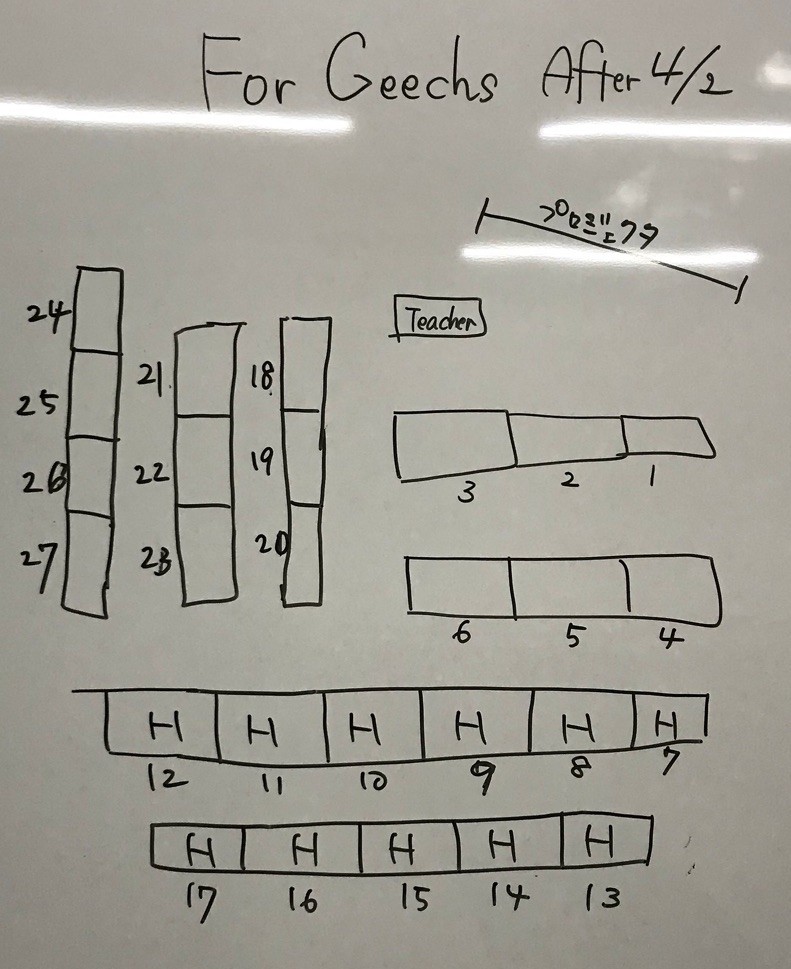 For Geechs After 4/2
Teacher
24
25
26
27
21
22
23
18
19
20
3 2 1
6 5 4
H H H H H H
12 11 10 9 8 7
H H H H H
17 16 15 14 13